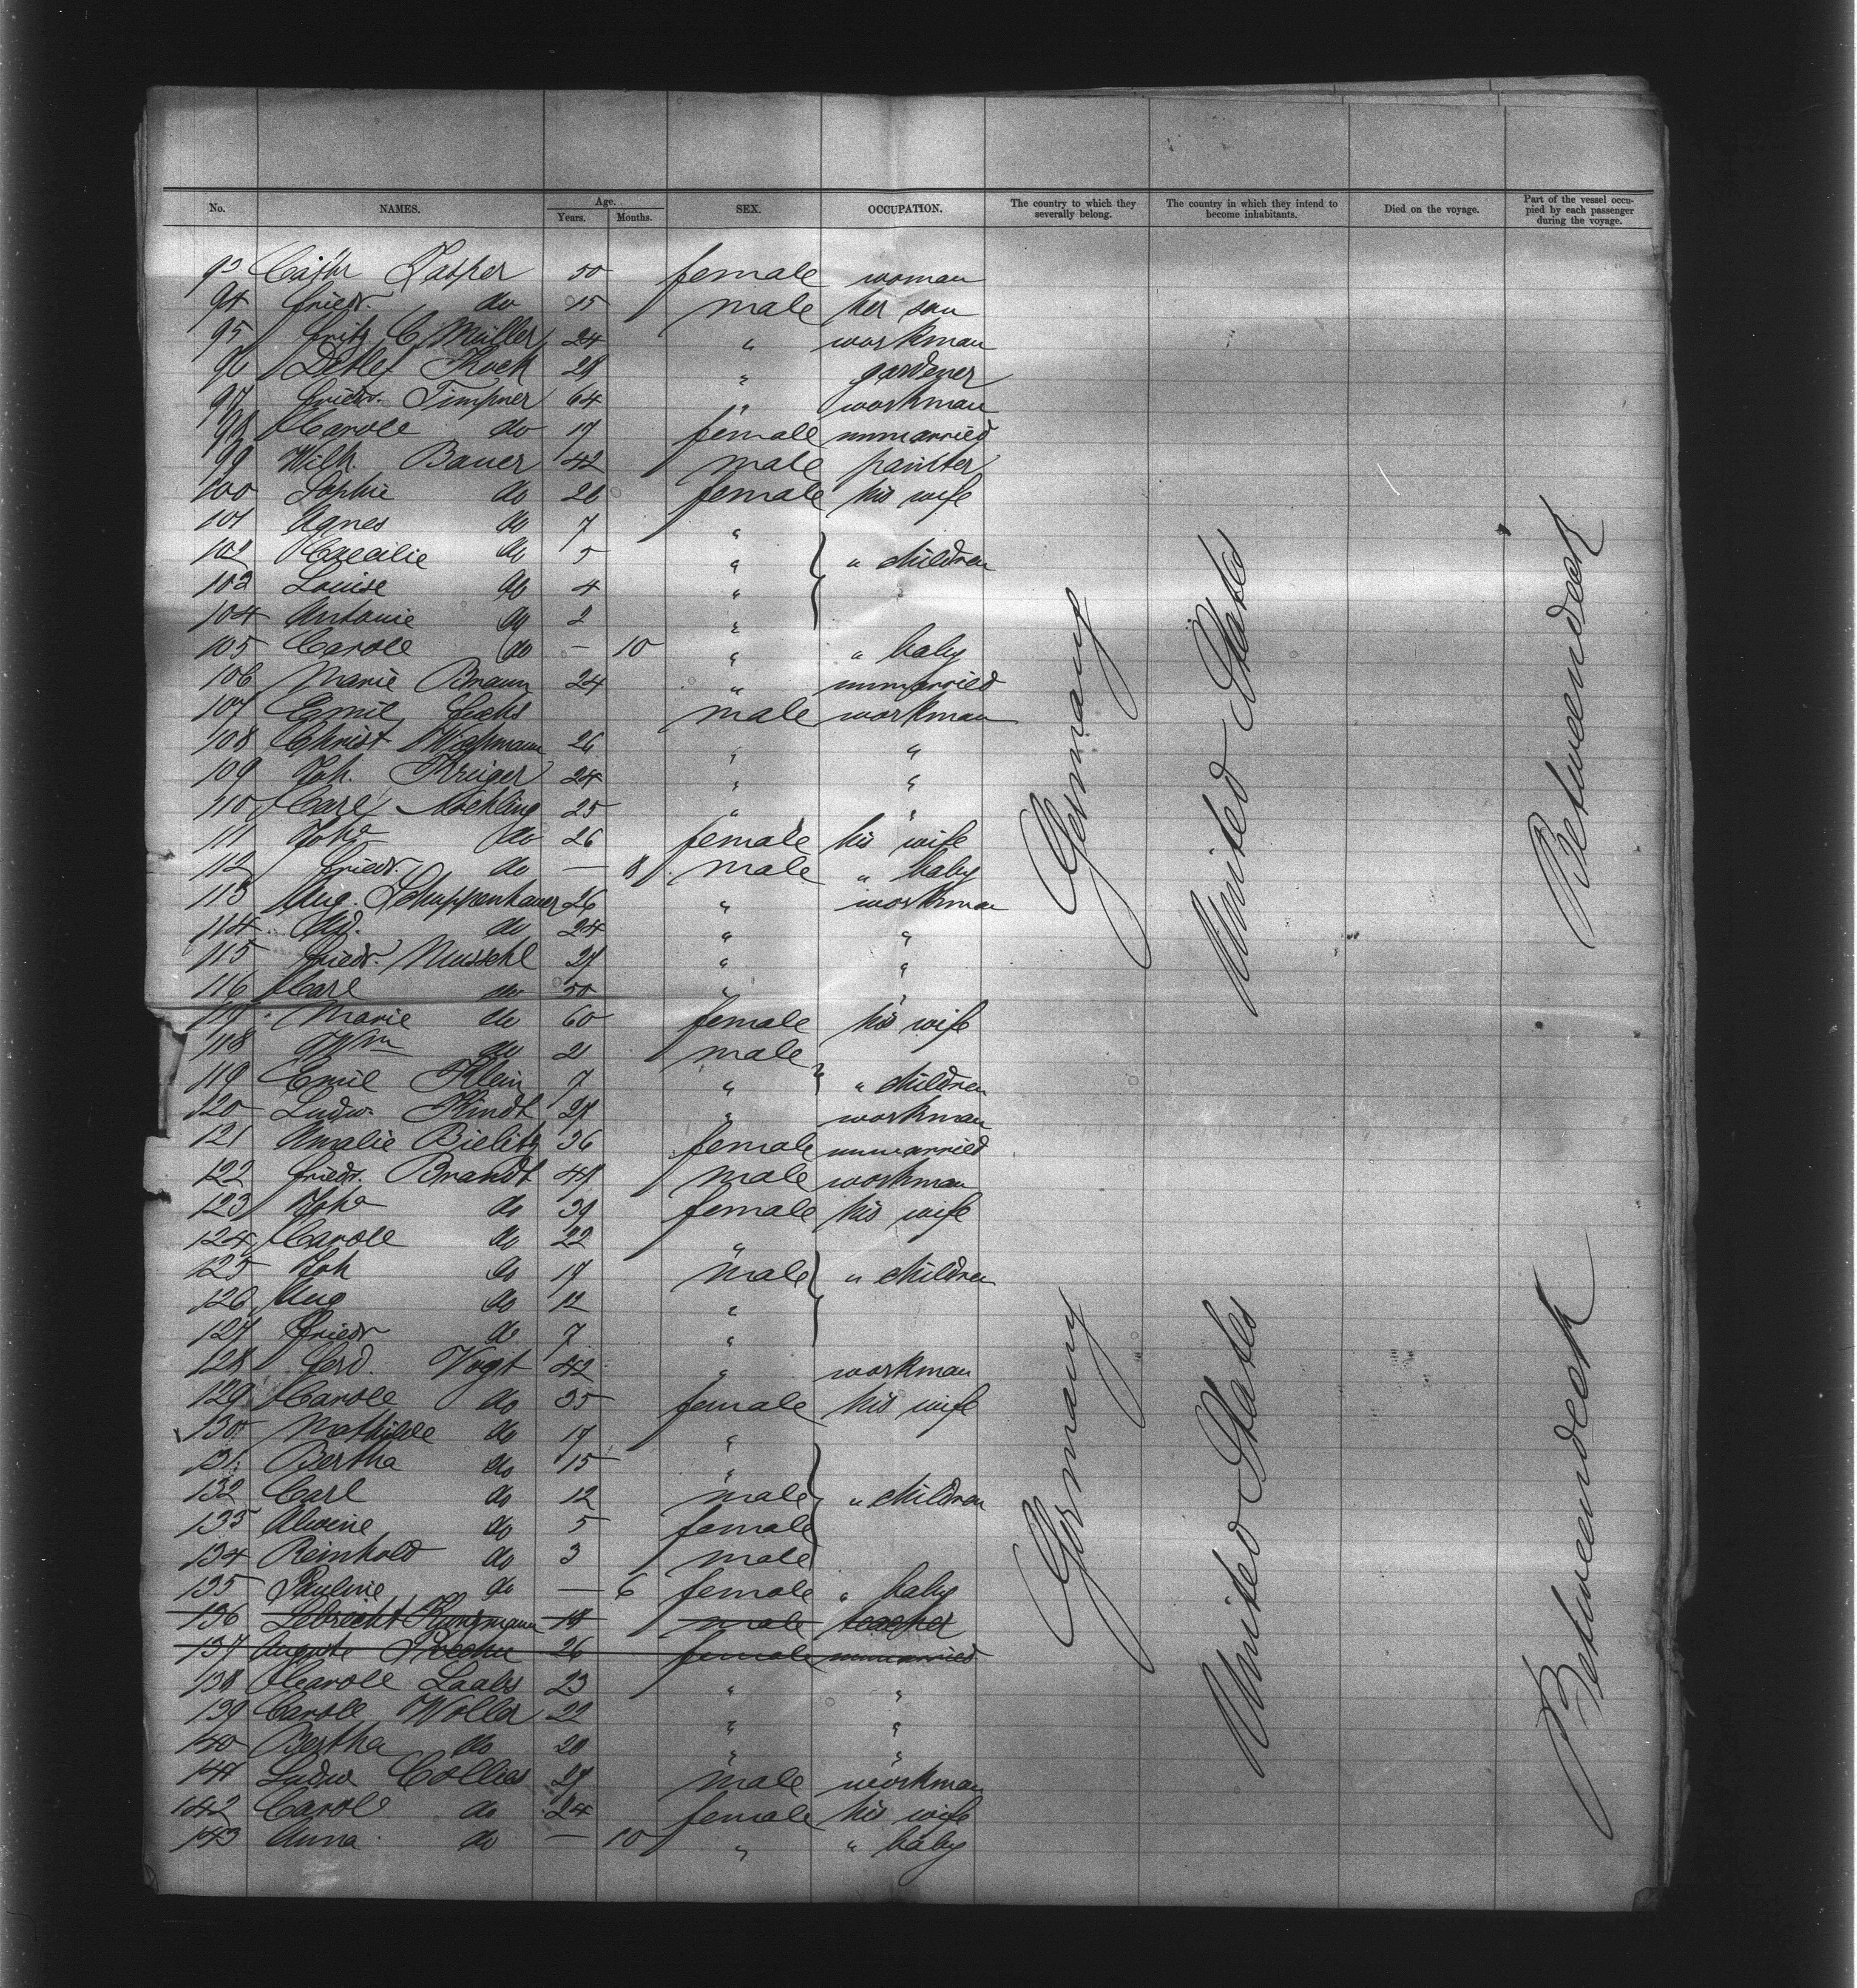 No. NAMES. Age. Years. Months. SEX. OCCUPATION. The country to which they severally belong. The country in which they intend to become inhabitants. Died on the voyage. Part of the vessel occupied by each passenger during the voyage.
93 Kasper 50 female woman
94 Friedr. do 15 male her son
95 Fritz C Müller 24 " workman
96 Detlef 28 " gardener
97 Friedr. Timpner 64 " workman
98 Caroll do 17 female unmarried
99 Wilh. Bauer 42 male painter
100 Sophie do 26 female his wife
101 Agnes do 7 "
102 Caecilie do 5 " " children
103 Louise do 4 "
104 Antonie do 2 "
105 Caroll do — 10 " " baby
106 Marie Braun 24 " unmarried
107 Emil Fuchs male workman
108 Christ 26 " "
109 Joh. Krüger 24 " "
110 Carl 25 " "
111 Joha do 26 female his wife
112 Friedr. do — 8 male " baby
113 Aug. Schuppenhauer 26 " workman
114 Ad. do 24 " "
115 Friedr. Muschl 27 " "
116 Carl do 50 " "
117 Marie do 60 female his wife
118 Wm do 21 male
119 Emil Klein 7 " " children
120 Ludw. Kindt 27 " workman
121 Amalie Bielitz 36 female unmarried
122 Friedr. Brandt 47 male workman
123 Joha do 39 female his wife
124 Caroll do 22 "
125 Joh do 17 male " children
126 Aug do 12 "
127 Friedr do 7 "
128 Ferd. Vogt 42 " workman
129 Caroll do 35 female his wife
130 Mathilde do 17 "
131 Bertha do 15 "
132 Carl do 12 male " children
133 Alwine do 5 female
134 Reinhold do 3 male
135 Pauline do — 6 female " baby
136 Lebrecht Kunzmann 18 male teacher
137 Auguste 26 female unmarried
138 Caroll Laabs 23 " "
139 Caroll Woller 22 " "
140 Bertha do 20 " "
141 Ludw Collies 27 male workman
142 Carol do 24 female his wife
143 Anna do — 10 " " baby
Germany United States Betweendeck
Germany United States Betweendeck